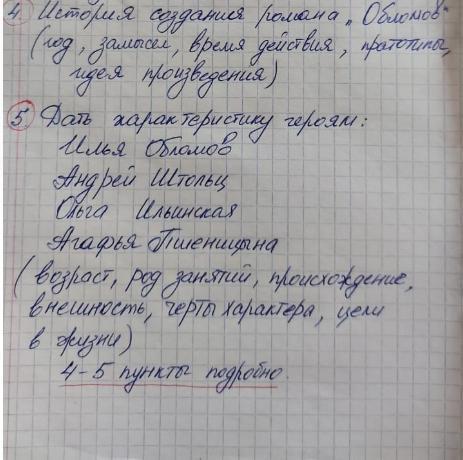 4. История создания романа „Обломов"
(год, замысел, время действия, прототипы,
идея произведения)
5 Дать характеристику героям:
Илья Обломов
Андрей Штольц
Ольга Ильинская
Агафья Пшеницына
(возраст, род занятий, происхождение,
внешность, черты характера, цели
в жизни)
4-5 пункты подробно.